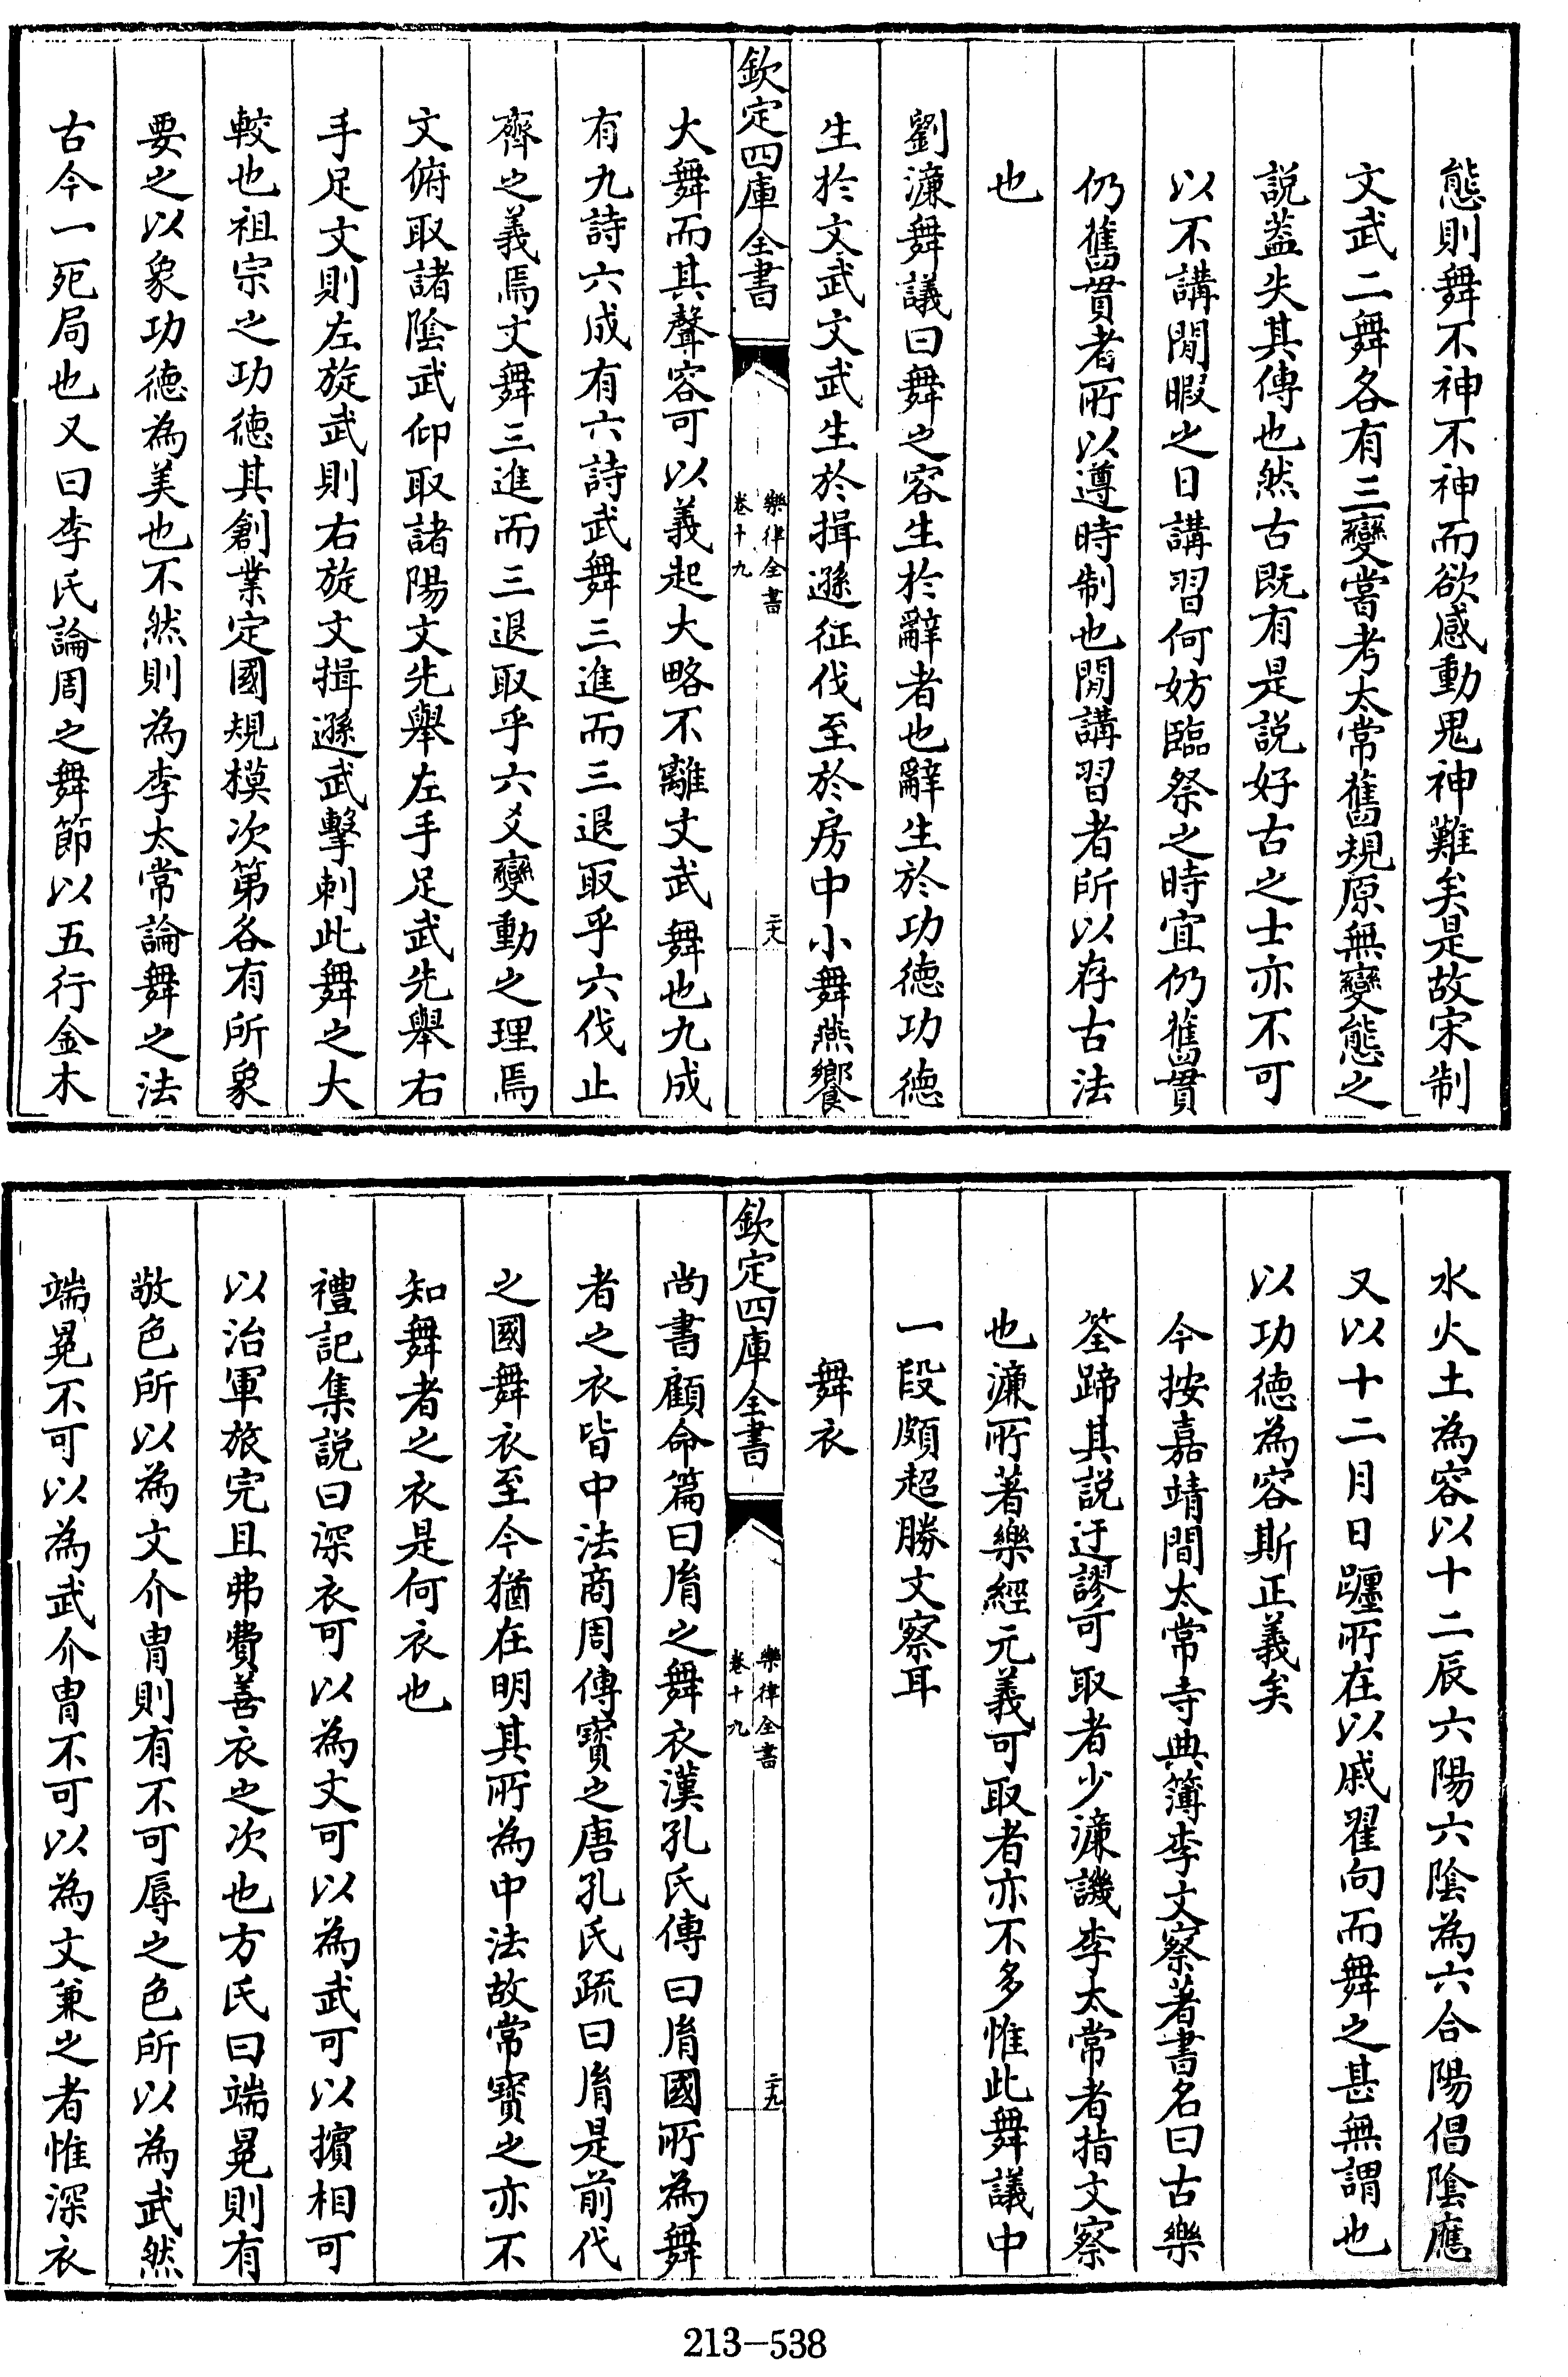 態則舞不神不神而欲感動鬼神難矣是故宋制
文武二舞各有三變嘗考太常舊規原無變態之
說蓋失其傳也然古既有是說好古之士亦不可
以不講閒暇之日講習何妨臨祭之時宜仍舊貫
仍舊貫者所以遵時制也閒講習者所以存古法
也
劉濂舞議曰舞之容生於辭者也辭生於功德功德
生於文武文武生於揖遜征伐至於房中小舞燕饗
欽定四庫全書
樂律全書
卷十九
二十八
大舞而其聲容可以義起大略不離文武舞也九成
有九詩六成有六詩武舞三進而三退取乎六伐止
齊之義焉文舞三進而三退取乎六爻變動之理焉
文俯取諸陰武仰取諸陽文先舉左手足武先舉右
手足文則左旋武則右旋文揖遜武擊刺此舞之大
較也祖宗之功德其創業定國規模次第各有所象
要之以象功德為美也不然則為李太常論舞之法
古今一死局也又曰李氏論周之舞節以五行金木
水火土為容以十二辰六陽六陰為六合陽倡陰應
又以十二月日躔所在以戚翟向而舞之甚無謂也
以功德為容斯正義矣
今按嘉靖間太常寺典簿李文察著書名曰古樂
筌蹄其說迂謬可取者少濂譏李太常者指文察
也濂所著樂經元義可取者亦不多惟此舞議中
一段頗超勝文察耳
舞衣
欽定四庫全書
樂律全書
卷十九
二十九
尚書顧命篇曰胤之舞衣漢孔氏傳曰胤國所為舞
者之衣皆中法商周傳寶之唐孔氏疏曰胤是前代
之國舞衣至今猶在明其所為中法故常寶之亦不
知舞者之衣是何衣也
禮記集說曰深衣可以為文可以為武可以擯相可
以治軍旅完且弗費善衣之次也方氏曰端冕則有
敬色所以為文介冑則有不可辱之色所以為武然
端冕不可以為武介冑不可以為文兼之者惟深衣
213-538